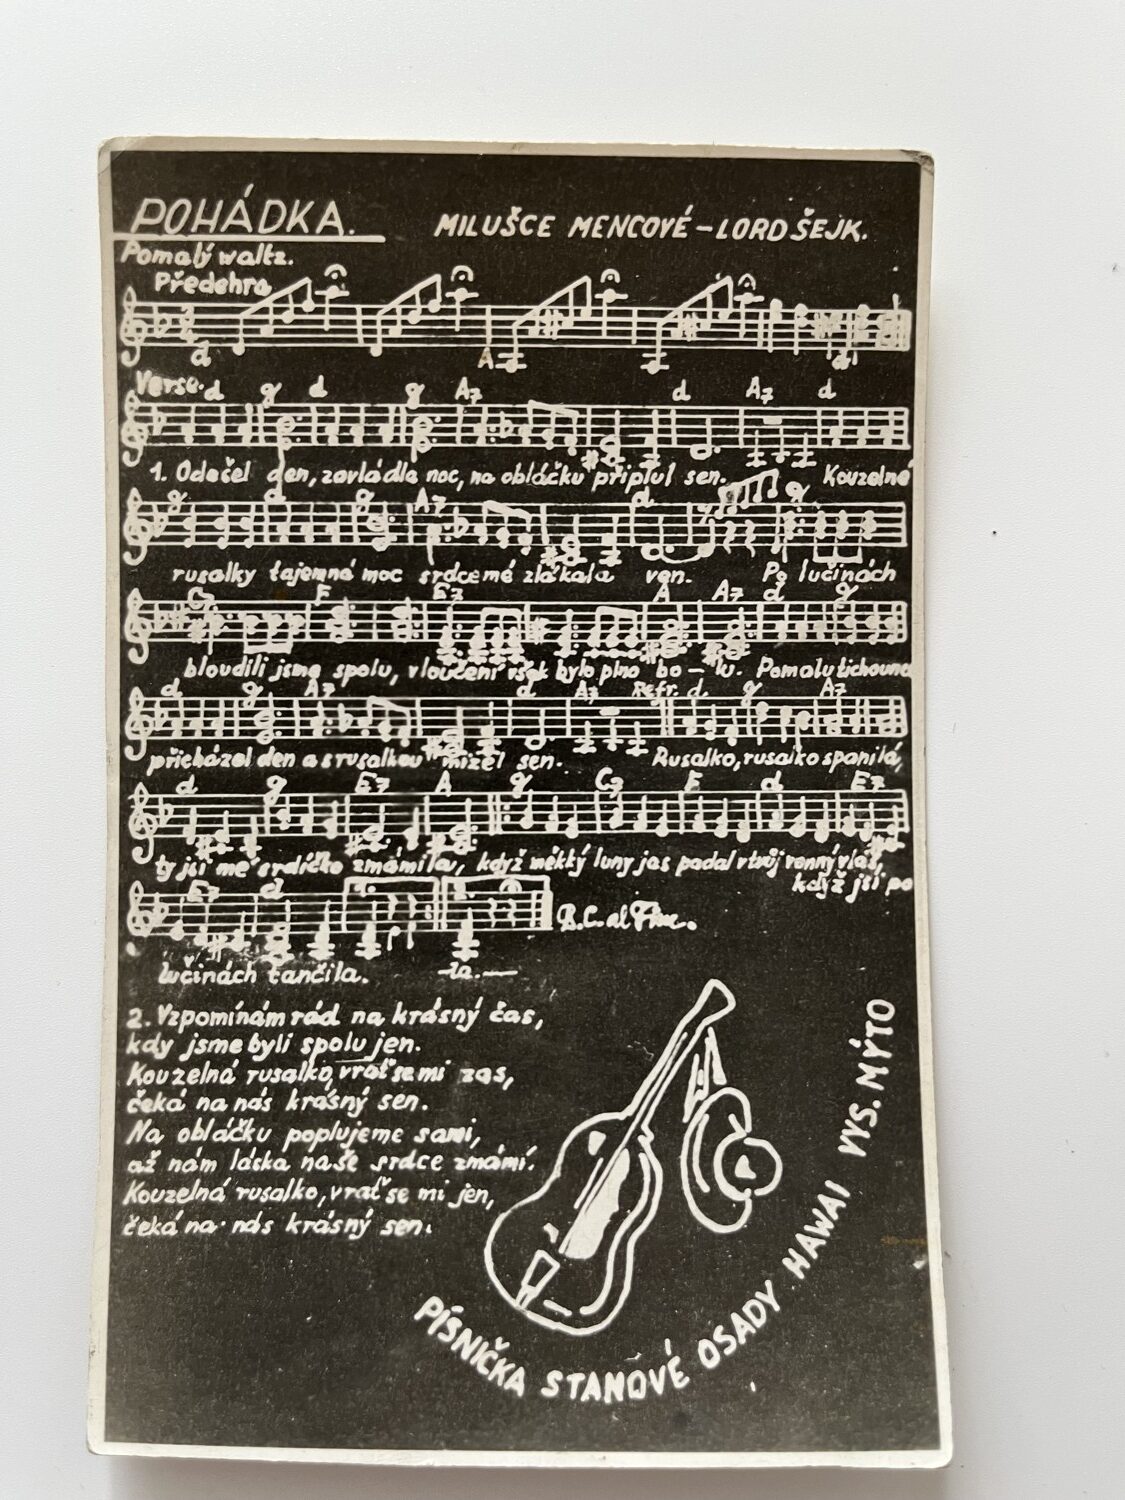 POHÁDKA.
MILUŠCE MENCOVÉ – LORD ŠEJK.
Pomalý waltz.
Předehra
d A d
Verse. d g d g A7 d A7 d
1. Oděšel den, zavládla noc, na obláčku připlul sen. Kouzelné
g d g A7 d g
rusalky tajemná moc srdce mé zlákala ven. Po lučinách
C7 F E7 A A7 d g
bloudili jsme spolu, v loučení však bylo plno bo – lu. Pomalu tichounce
d g A7 d A7 Refr. d g A7
přicházel den a s rusalkou mizel sen. Rusalko, rusalko spanilá,
d g E7 A g C7 F d E7
ty jsi mé srdíčko zmámila, když měkký luny jas padal v tvůj vonný vlas,
když jsi po
E7 d 1. 2. D.C. al Fine.
lučinách tančila. –la.—
2. Vzpomínám rád na krásný čas,
kdy jsme byli spolu jen.
Kouzelná rusalko, vrať se mi zas,
čeká na nás krásný sen.
Na obláčku poplujeme sami,
až nám láska naše srdce zmámí.
Kouzelná rusalko, vrať se mi jen,
čeká na nás krásný sen.
PÍSNIČKA STANOVÉ OSADY HAWAI VYS. MÝTO